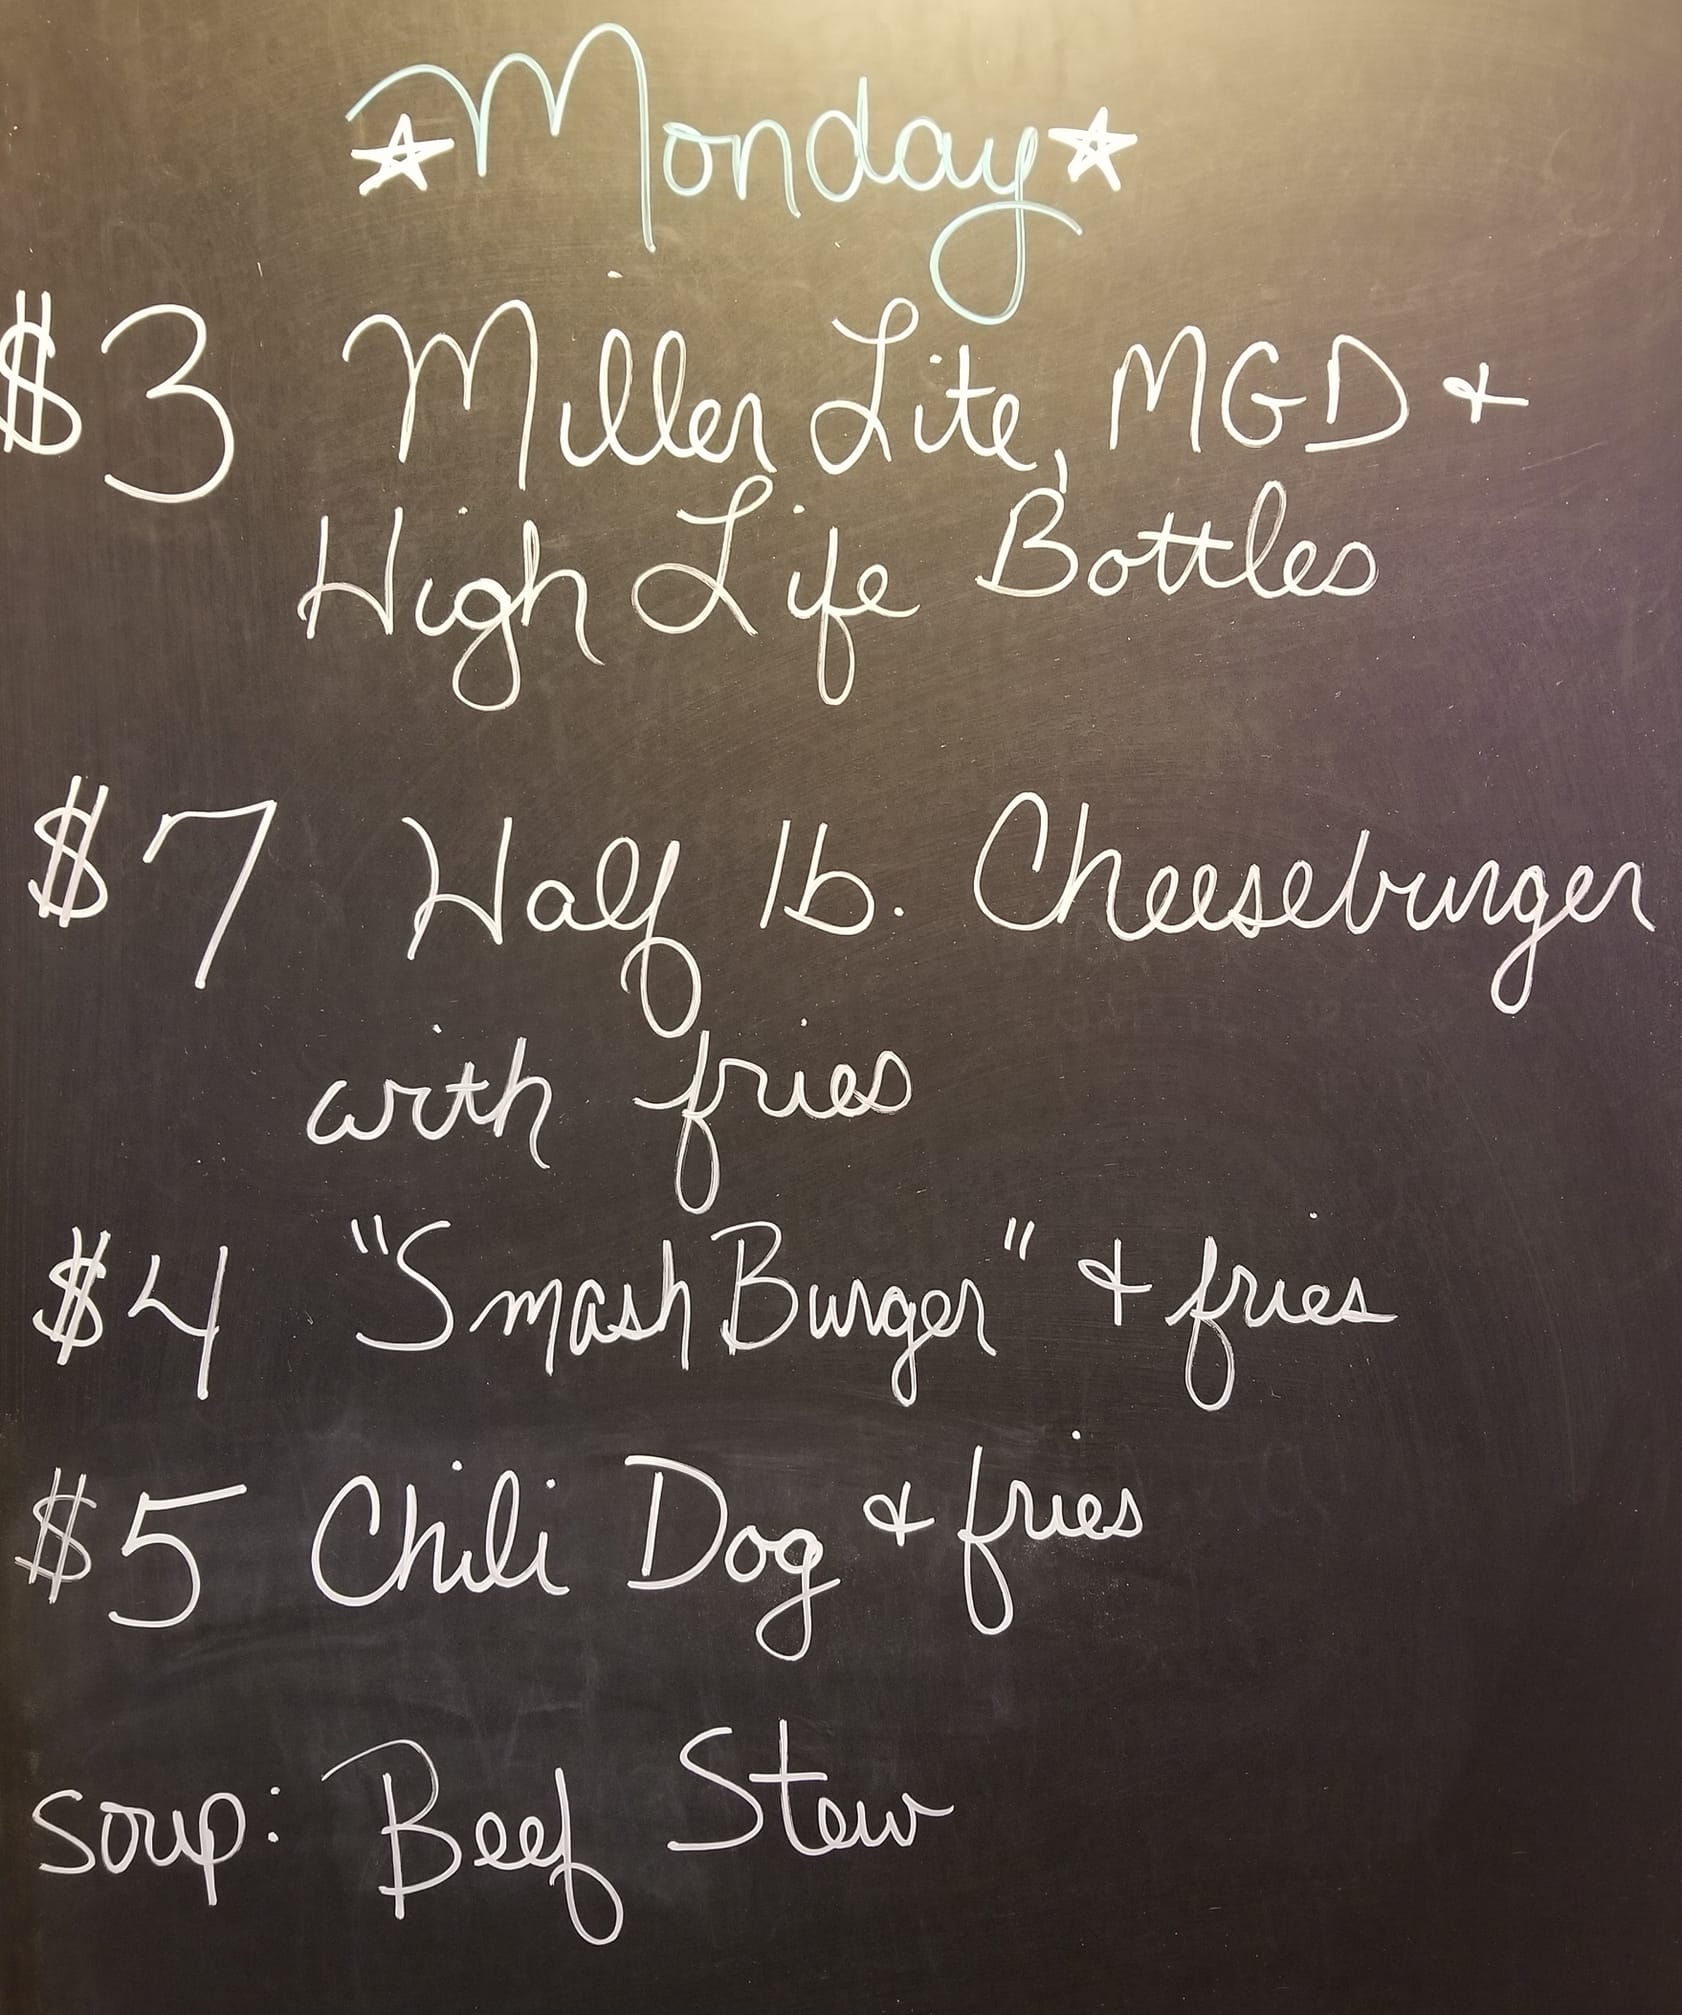 ☆Monday☆
$3 Miller Lite, MGD &
High Life Bottles
$7 Half lb. Cheeseburger
with fries
$4 "Smash Burger" & fries
$5 Chili Dog & fries
soup: Beef Stew